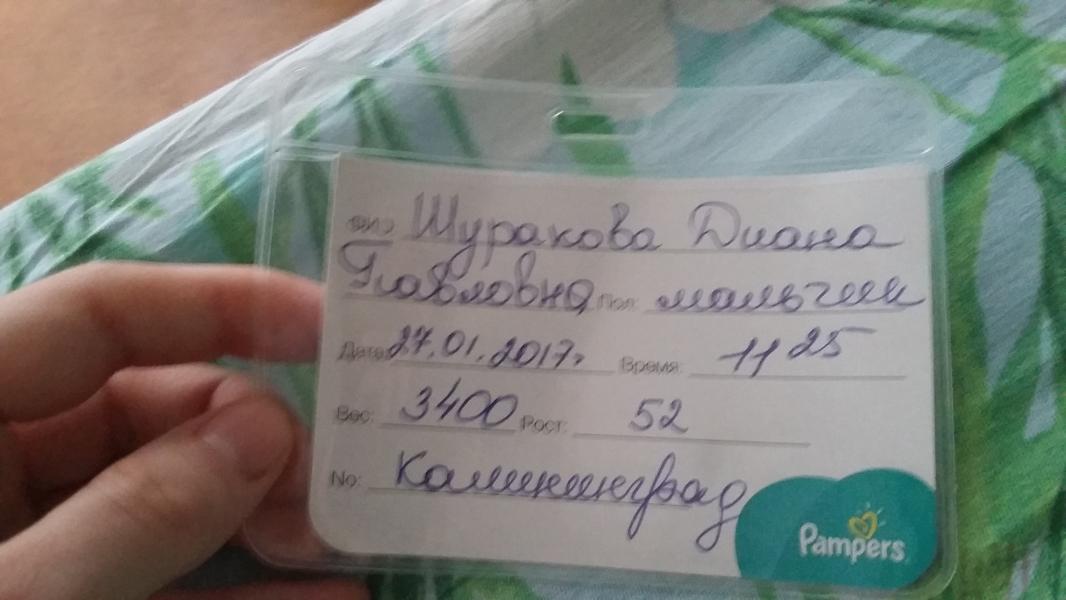 ФИО Шуракова Диана
Павловна Пол: мальчик
Дата: 27.01.2017г Время: 11 25
Вес: 3400 Рост: 52
No: Калининград
Pampers